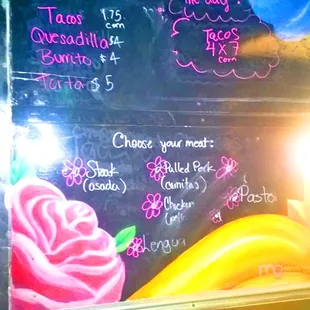 Tacos 1.75
corn
Quesadilla $4
Burrito $4
Torta $5
the day!
Tacos
4 x 7
corn
Choose your meat:
Steak
(asada)
Pulled Pork
(carnitas)
Chicken
Pastor
Lengua